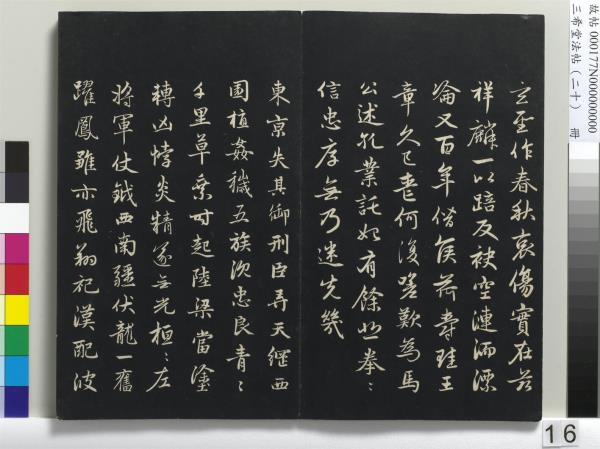 故帖 000177N000000000
三希堂法帖（二十） 冊
玄聖作春秋哀傷實在茲
祥麟一以踣反袂空漣洏漂
淪又百年僭侯荷爵珪王
章久已喪何復嗟歎為馬
公述孔業託始有餘悲拳〻
信忠厚無乃迷先幾
東京失其御刑臣弄天綱西
園植姦穢五族沉忠良青〻
千里草乘時起陸梁當塗
轉凶悖炎精遂無光桓〻左
將軍仗鉞西南疆伏龍一奮
躍鳳雛亦飛翔祀漢配彼
16